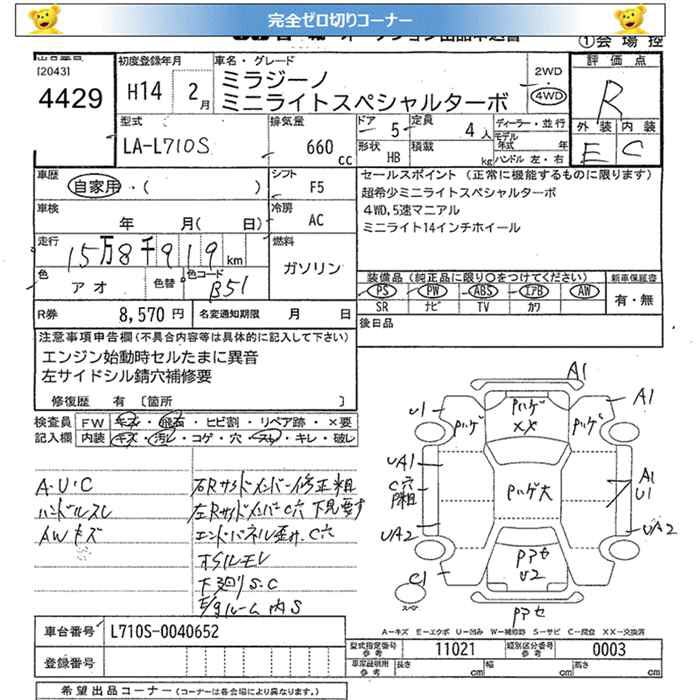 完全ゼロ切りコーナー
①会場控
[2043]
4429
初度登録年月
H14 2月
車名・グレード
ミラジーノ
ミニライトスペシャルターボ
2WD
4WD
評価点
R
外装 内装
E C
型式
LA-L710S
排気量
660 cc
ドア 5
定員 4人
形状 HB
積載 kg
ディーラー・並行
モデル年式 年
ハンドル 左・右
車歴
自家用・( )
シフト F5
車検
年 月( 日)
冷房 AC
走行
15万8千919km
燃料
ガソリン
色
アオ
色替
色コード
B51
R券 8,570円
名変通知期限 月 日
セールスポイント(正常に機能するものに限ります)
超希少ミニライトスペシャルターボ
4WD,5速マニアル
ミニライト14インチホイール
装備品(純正品に限り○をつけてください)
PS PW ABS エアB AW
SR ナビ TV カワ
新車保証書
有・無
後日品
注意事項申告欄(不具合内容等は具体的に記入して下さい)
エンジン始動時セルたまに異音
左サイドシル錆穴補修要
修復歴 有 〔箇所 〕
検査員 FW キズ・飛石・ヒビ割・リペア跡・×要
記入欄 内装 キズ・汚レ・コゲ・穴・スレ・キレ・破レ
A・U・C
ハンドルスレ
AWキズ
右Rサイドメンバー修正粗
左Rサイドメンバーc穴 下見要す
エンドパネル歪み、C穴
オイルモレ
下廻りS.C
内S
A1
U1
A1
Pハゲ
Pハゲ
XX
Pハゲ
UA1
C穴
Pハゲ大
A1
U1
UA2
UA2
Pアセ
U2
C1
Pアセ
スペアー
A−キズ E−エクボ U−凹み W−補修跡 S−サビ C−腐食 XX−交換済
車台番号 L710S-0040652
登録番号
型式指定番号 参考 11021
類別区分番号 参考 0003
車庫証明用 参考 長さ cm 幅 cm 高さ cm
希望出品コーナー(コーナーは各会場により異なります。)